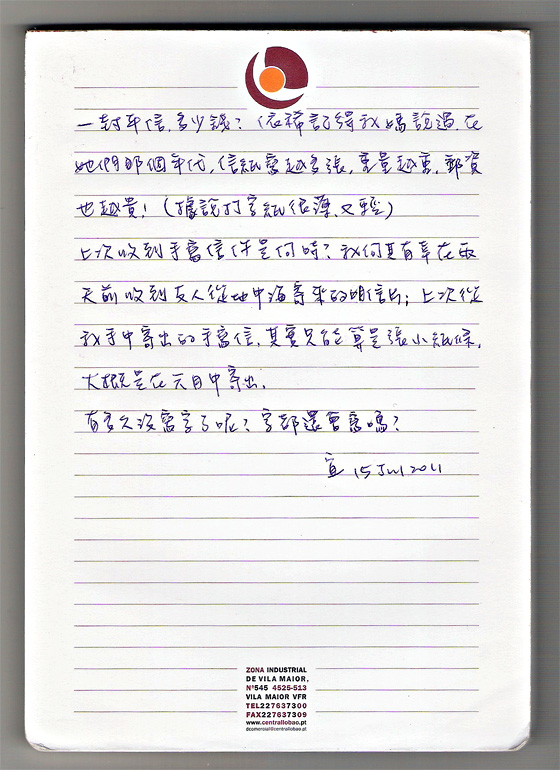 一封平信,多少錢? 依稀記得我媽說過,在
她們那個年代,信紙寫越多張,重量越重,郵資
也越貴! (據說打字紙很薄,又輕)
上次收到手寫信件是何時? 我何其有幸在兩
天前收到友人從地中海寄來的明信片; 上次從
我手中寄出的手寫信,其實只能算是張小紙條,
大概是在六月中寄出.
有多久沒寫字了呢? 字都還會寫嗎?
宜 15 Jul 2011
ZONA INDUSTRIAL
DE VILA MAIOR,
Nº545 4525-513
VILA MAIOR VFR
TEL227637300
FAX227637309
www.centrallobao.pt
dcomercial@centrallobao.pt